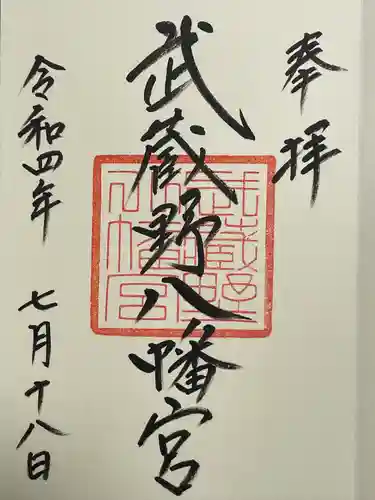 奉拝
武蔵野八幡宮
武蔵野八幡宮
令和四年 七月十八日